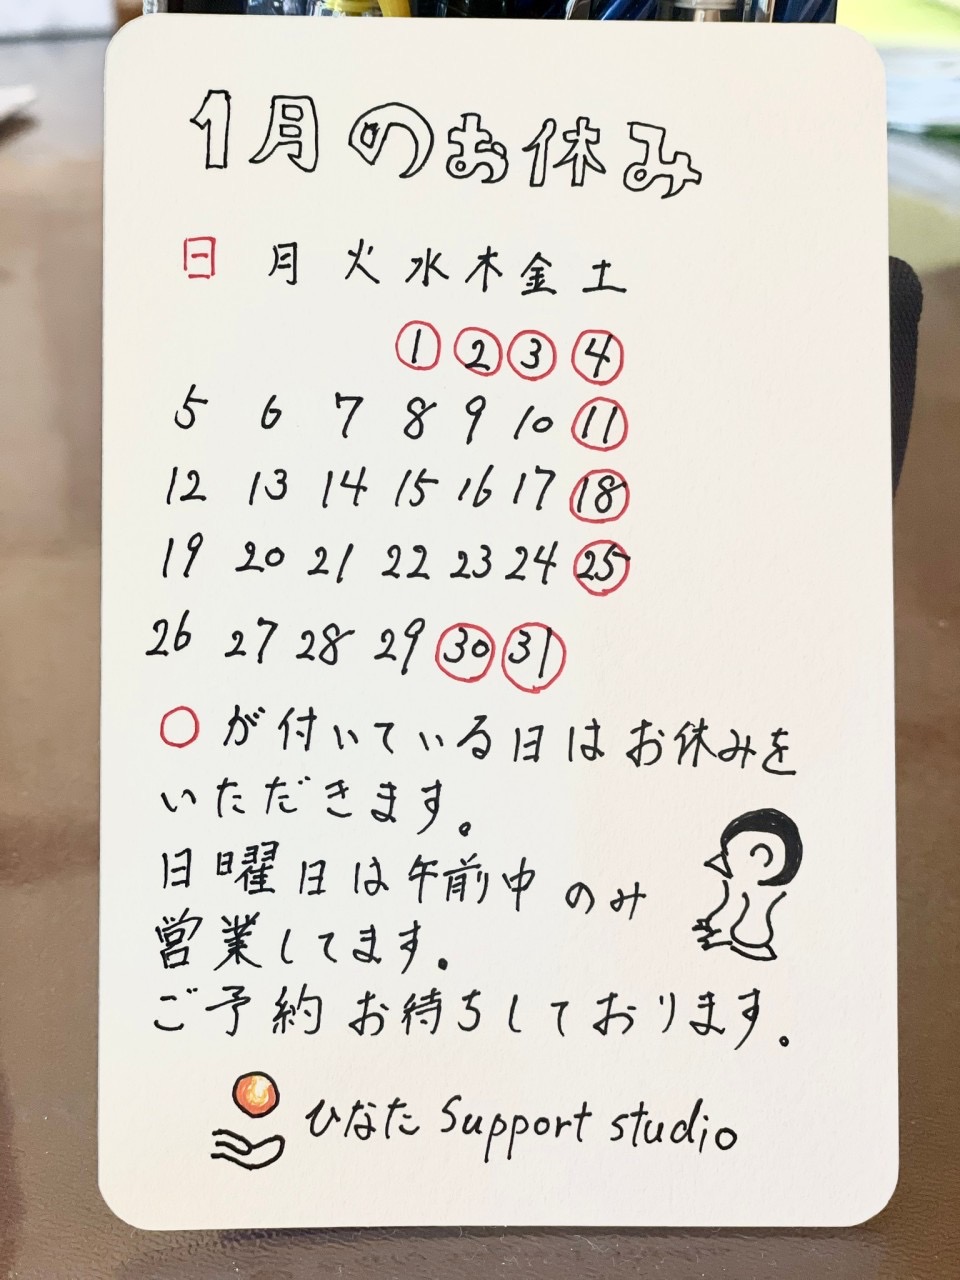 1月のお休み
日 月 火 水 木 金 土
1 2 3 4
5 6 7 8 9 10 11
12 13 14 15 16 17 18
19 20 21 22 23 24 25
26 27 28 29 30 31
○が付いている日はお休みを
いただきます。
日曜日は午前中のみ
営業してます。
ご予約お待ちしております。
ひなた Support studio